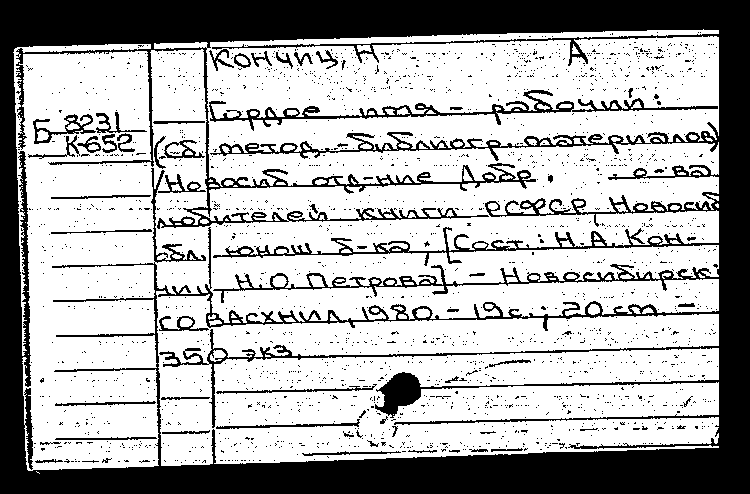 Кончиц, Н А
Гордое имя - рабочий:
Б 8231
К-652
(Сб. метод.-библиогр. материалов)
/Новосиб. отд-ние Добр. о-ва
любителей книги РСФСР, Новосиб
обл. юнош. б-ка ; [Сост.: Н.А. Кон-
чиц, Н.О. Петрова]. - Новосибирск:
СО ВАСХНИЛ, 1980. - 19с.; 20 см. -
350 экз.